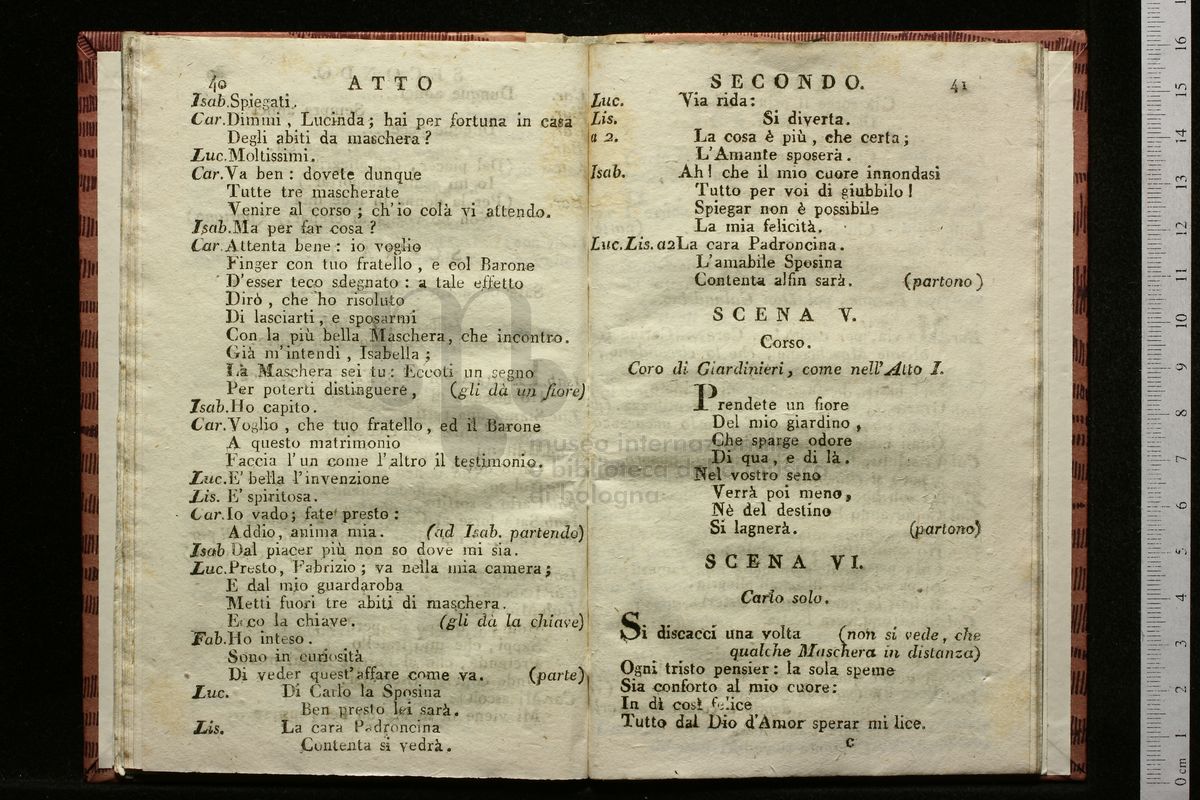 40 ATTO
Isab. Spiegati.
Car. Dimmi, Lucinda; hai per fortuna in casa
Degli abiti da maschera?
Luc. Moltissimi.
Car. Va ben: dovete dunque
Tutte tre mascherate
Venire al corso; ch'io colà vi attendo.
Isab. Ma per far cosa?
Car. Attenta bene: io voglio
Finger con tuo fratello, e col Barone
D'esser teco sdegnato: a tale effetto
Dirò, che ho risoluto
Di lasciarti, e sposarmi
Con la più bella Maschera, che incontro.
Già m'intendi, Isabella;
La Maschera sei tu: Eccoti un segno
Per poterti distinguere, (gli dà un fiore)
Isab. Ho capito.
Car. Voglio, che tuo fratello, ed il Barone
A questo matrimonio
Faccia l'un come l'altro il testimonio.
Luc. E' bella l'invenzione
Lis. E' spiritosa.
Car. Io vado; fate presto:
Addio, anima mia. (ad Isab. partendo)
Isab Dal piacer più non so dove mi sia.
Luc. Presto, Fabrizio; va nella mia camera;
E dal mio guardaroba
Metti fuori tre abiti di maschera.
Ecco la chiave. (gli dà la chiave)
Fab. Ho inteso.
Sono in curiosità
Di veder quest'affare come va. (parte)
Luc. Di Carlo la Sposina
Ben presto lei sarà.
Lis. La cara Padroncina
Contenta si vedrà.
SECONDO. 41
Luc. Via rida:
Lis. Si diverta.
a 2. La cosa è più, che certa;
L'Amante sposerà.
Isab. Ah! che il mio cuore innondasi
Tutto per voi di giubbilo!
Spiegar non è possibile
La mia felicità.
Luc. Lis. a2 La cara Padroncina.
L'amabile Sposina
Contenta alfin sarà. (partono)
SCENA V.
Corso.
Coro di Giardinieri, come nell'Atto I.
Prendete un fiore
Del mio giardino,
Che sparge odore
Di qua, e di là.
Nel vostro seno
Verrà poi meno,
Nè del destino
Si lagnerà. (partono)
SCENA VI.
Carlo solo.
Si discacci una volta (non si vede, che
qualche Maschera in distanza)
Ogni tristo pensier: la sola speme
Sia conforto al mio cuore:
In dì così felice
Tutto dal Dio d'Amor sperar mi lice.
C
museo internazionale
e biblioteca della musica
di bologna
0 cm 1 2 3 4 5 6 7 8 9 10 11 12 13 14 15 16